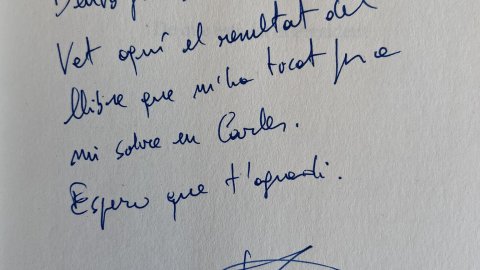 Vet aquí el resultat del
llibre que m'ha tocat fer a
mi sobre en Carles.
Espero que t'agradi.